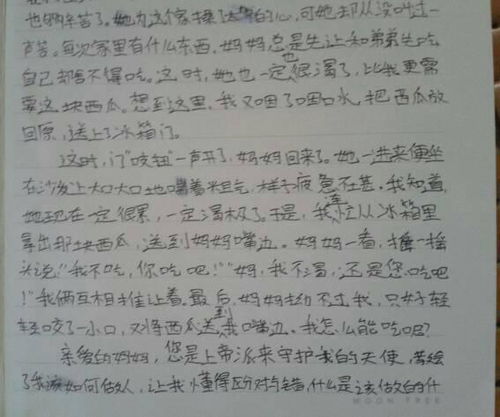 也够辛苦了。她为这个家操了太的心,可她却从没叫过一
声苦。每次家里有什么东西,妈妈总是先让和弟弟先吃
自己却舍不得吃。这时,她也一定也很渴了,比我更需
要这块西瓜。想到这里,我又咽了咽口水,把西瓜放
回原,送上了冰箱门。
这时,门“吱钮”一声开了,妈妈回来了。她一进来便坐
在沙发上大口大口地喘着粗气,样子疲惫不甚。我知道,
她现在一定很累,一定渴极了。于是,我连忙从冰箱里
拿出那块西瓜,送到妈妈嘴边。妈妈一看,摇一摇
头说:“我不吃,你吃吧!”“妈,我不渴,还是您吃吧
!”我俩互相推让着,最后,妈妈拗不过我,只好轻
轻咬了一小口,又将西瓜送到我嘴边。我怎么能吃呢?
亲爱的妈妈,您是上帝派来守护我的天使,
了我该如何做人,让我懂得区分对与错,什么是该做的什
MOON TREE